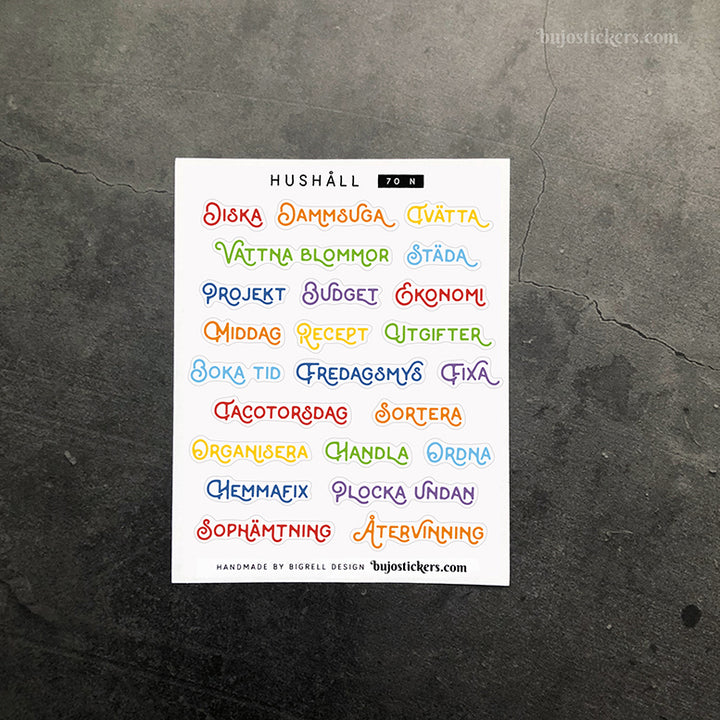 bujostickers.com
HUSHÅLL 70 N
DISKA DAMMSUGA TVÄTTA
VATTNA BLOMMOR STÄDA
PROJEKT BUDGET EKONOMI
MIDDAG RECEPT UTGIFTER
BOKA TID FREDAGSMYS FIXA
TACOTORSDAG SORTERA
ORGANISERA HANDLA ORDNA
HEMMAFIX PLOCKA UNDAN
SOPHÄMTNING ÅTERVINNING
HANDMADE BY BIGRELL DESIGN bujostickers.com